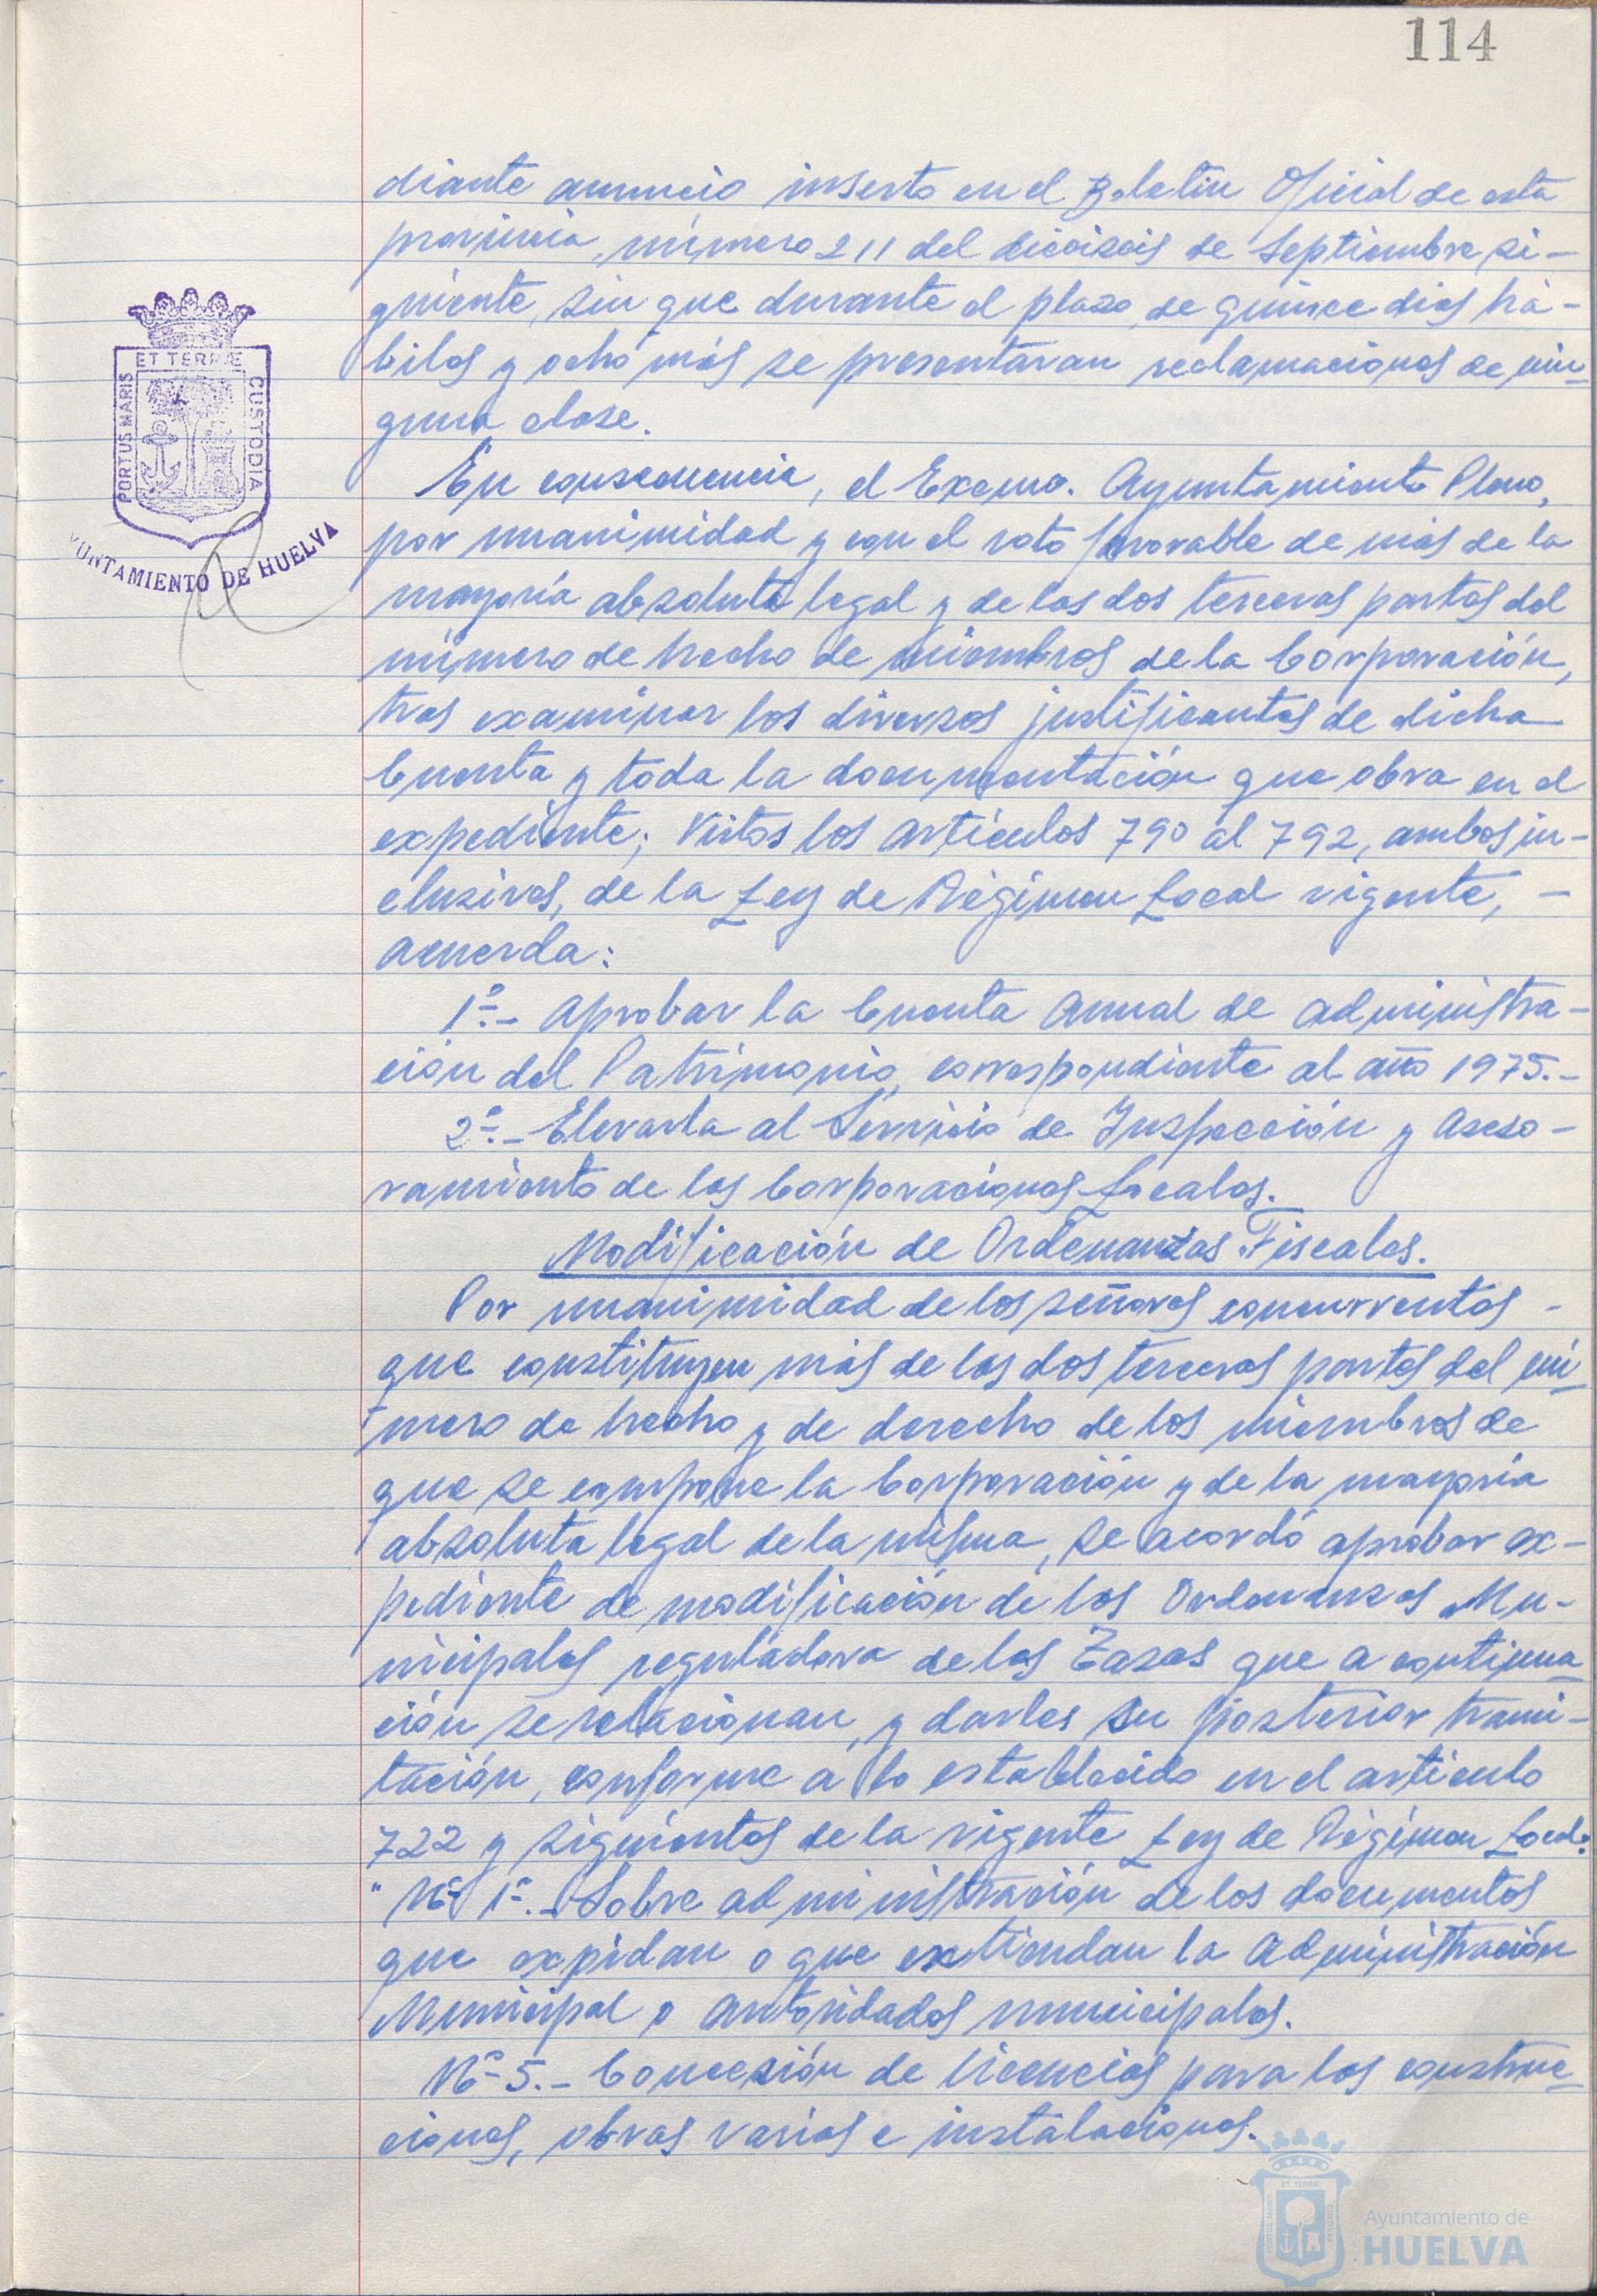 114
diante anuncio inserto en el Boletin Oficial de esta
provincia, número 211 del dieciseis de Septiembre si-
guiente, sin que durante el plazo de quince dias há-
biles y ocho más se presentaran reclamaciones de nin-
guna clase.
En consecuencia, el Excmo. Ayuntamiento Pleno,
por unanimidad y con el voto favorable de más de la
mayoría absoluta legal y de las dos terceras partes del
número de hecho de miembros de la Corporación,
tras examinar los diversos justificantes de dicha
Cuenta y toda la documentación que obra en el
expediente; Vistos los artículos 790 al 792, ambos in-
clusives, de la Ley de Régimen Local vigente, -
acuerda:
1º.- Aprobar la Cuenta Anual de Administra-
ción del Patrimonio, correspondiente al año 1975.-
2º.- Elevarla al Servicio de Inspección y Aseso-
ramiento de las Corporaciones Locales.
Modificación de Ordenanzas Fiscales.
Por unanimidad de los señores concurrentes -
que constituyen más de las dos terceras partes del nú-
mero de hecho y de derecho de los miembros de
que se compone la Corporación y de la mayoría
absoluta legal de la misma, se acordó aprobar ex-
pediente de modificación de las Ordenanzas Mu-
nicipales reguladora de las Tasas que a continua-
ción se relacionan, y darles su posterior trami-
tación, conforme a lo establecido en el artículo
722 y siguientes de la vigente Ley de Régimen Local:
" Nº 1º.- Sobre administración de los documentos
que expidan o que extiendan la Administración
Municipal o Autoridades municipales.
Nº 5.- Concesión de licencias para las construc-
ciones, obras varias e instalaciones.
PORTUS MARIS ET TERRAE CUSTODIA
YUNTAMIENTO DE HUELVA
Ayuntamiento de
HUELVA